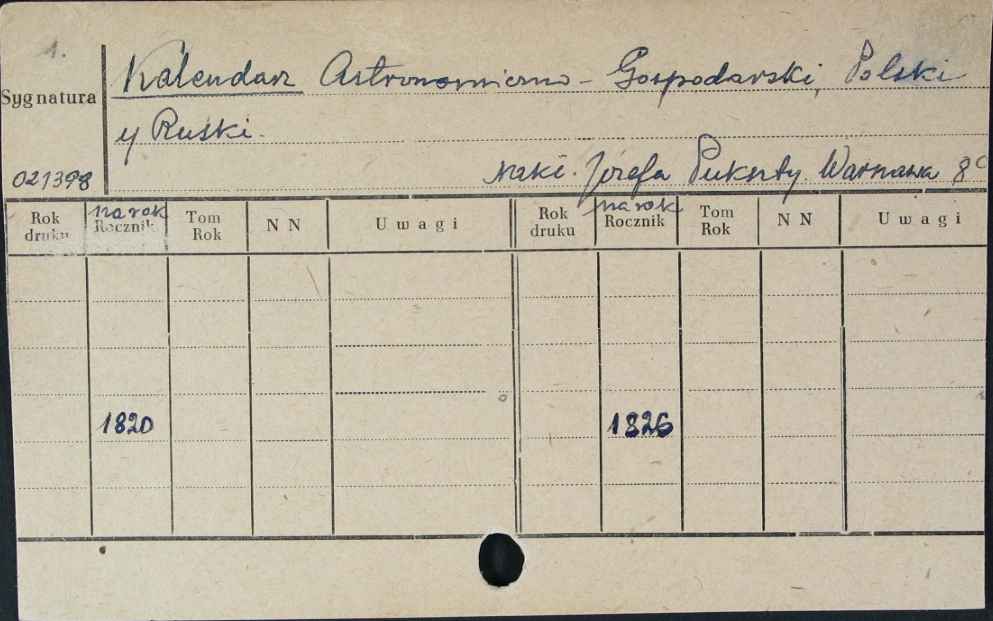 1.
Kalendarz Astronomiczno - Gospodarski, Polski
Sygnatura
y Ruski.
021398
nakł. Józefa Pukszty. Warszawa 8°
na rok
na rok
Rok druku
Rocznik
Tom Rok
N N
Uwagi
Rok druku
Rocznik
Tom Rok
N N
Uwagi
1820
1826